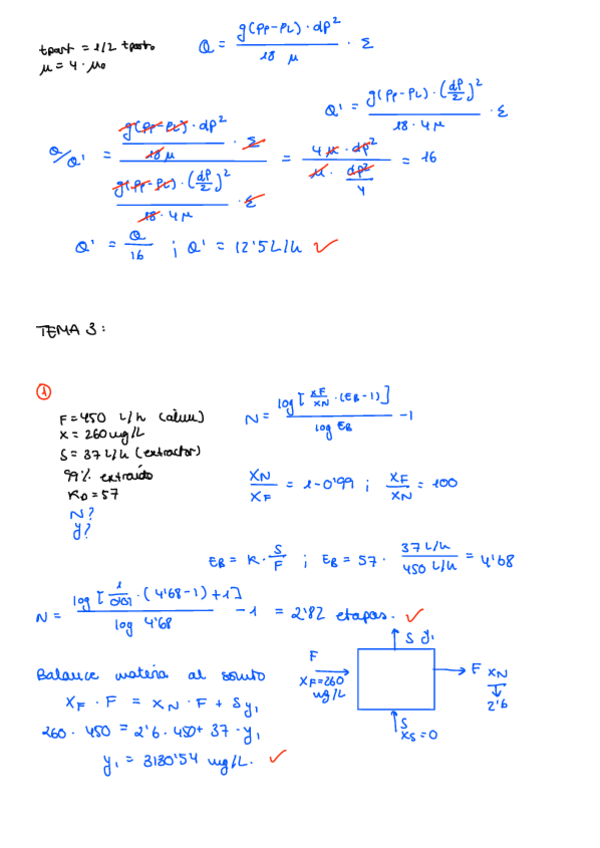 tpart = 1/2 tparto
μ = 4 · μo
Q = g(ρp-ρL) · dp² / 18 μ · Σ
Q' = g(ρp-ρL) · (dp/2)² / 18 · 4μ · Σ
Q/Q' = g(ρp-ρL) · dp² / 18μ · Σ / g(ρp-ρL) · (dp/2)² / 18 · 4μ · Σ = 4 μ · dp² / μ · dp²/4 = 16
Q' = Q/16 ; Q' = 12'5 L/h ✓
TEMA 3:
①
F = 450 L/h
X = 260 mg/L
S = 37 L/h (extractor)
99% extraído
KD = 57
N?
y?
N = log [XF/XN · (EB-1)] / log EB - 1
XN/XF = 1-0'99 ; XF/XN = 100
EB = K · S/F ; EB = 57 · 37 L/h / 450 L/h = 4'68
N = log [1/0'01 · (4'68-1)+1] / log 4'68 - 1 = 2'82 etapas. ✓
Balance materia al soluto
XF · F = XN · F + Sy1
260 · 450 = 2'6 · 450 + 37 · y1
y1 = 3130'54 mg/L. ✓
S y1
F
XF=260 mg/L
F XN
2'6
S
XS=0